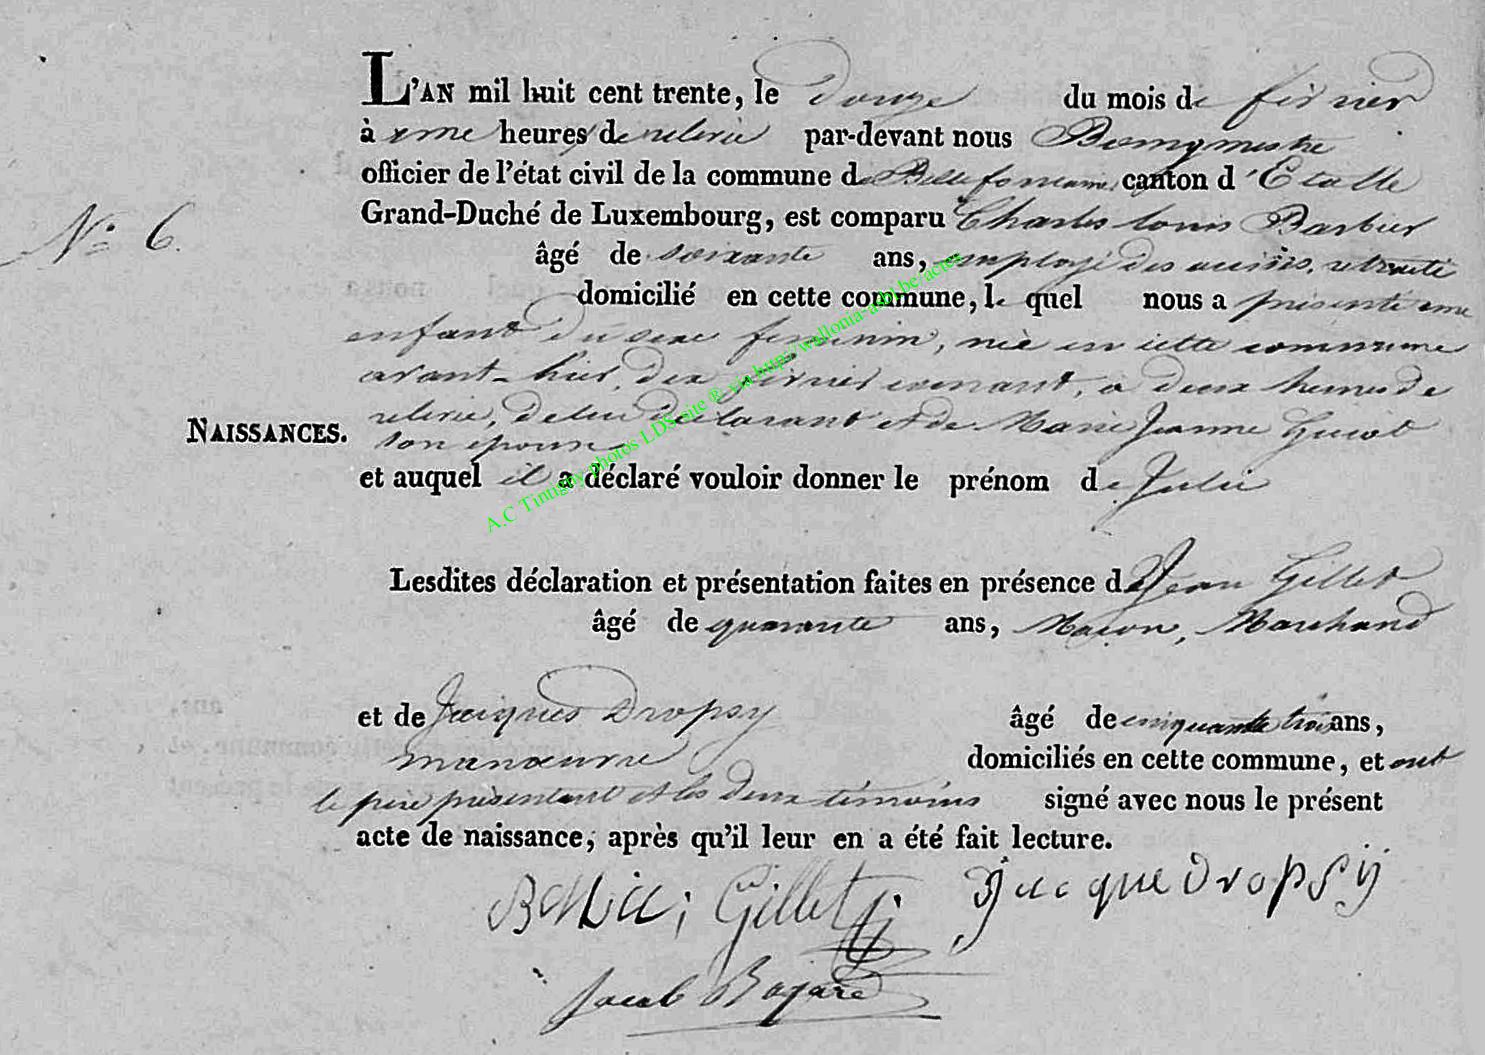 L'AN mil huit cent trente, le douze du mois de février
à une heures de relevée par-devant nous Bourgmestre
officier de l'état civil de la commune de Bellefontaine, canton d'Etalle
Grand-Duché de Luxembourg, est comparu Charles Louis Barbier
N° 6.
âgé de soixante ans, employé des accises, retraité
domicilié en cette commune, le quel nous a présenté une
enfant du sexe feminin, née en cette commune
avant-hier, dix février courant, à deux heures de
relevée, de lui déclarant et de Marie Jeanne
NAISSANCES.
son epouse
et auquel il a déclaré vouloir donner le prénom de Julie
A.C Tintigny photos LDS site ® via http://wallonia-asbl.be/actes
Lesdites déclaration et présentation faites en présence de Jean Gillet
âgé de quarante ans, Maçon, Marchand
et de Jacques Dropsy âgé de cinquante trois ans,
manoeuvre domiciliés en cette commune, et ont
le pere présentant et les deux témoins signé avec nous le présent
acte de naissance, après qu'il leur en a été fait lecture.
Gillet Jacque Dropsij
Jacob